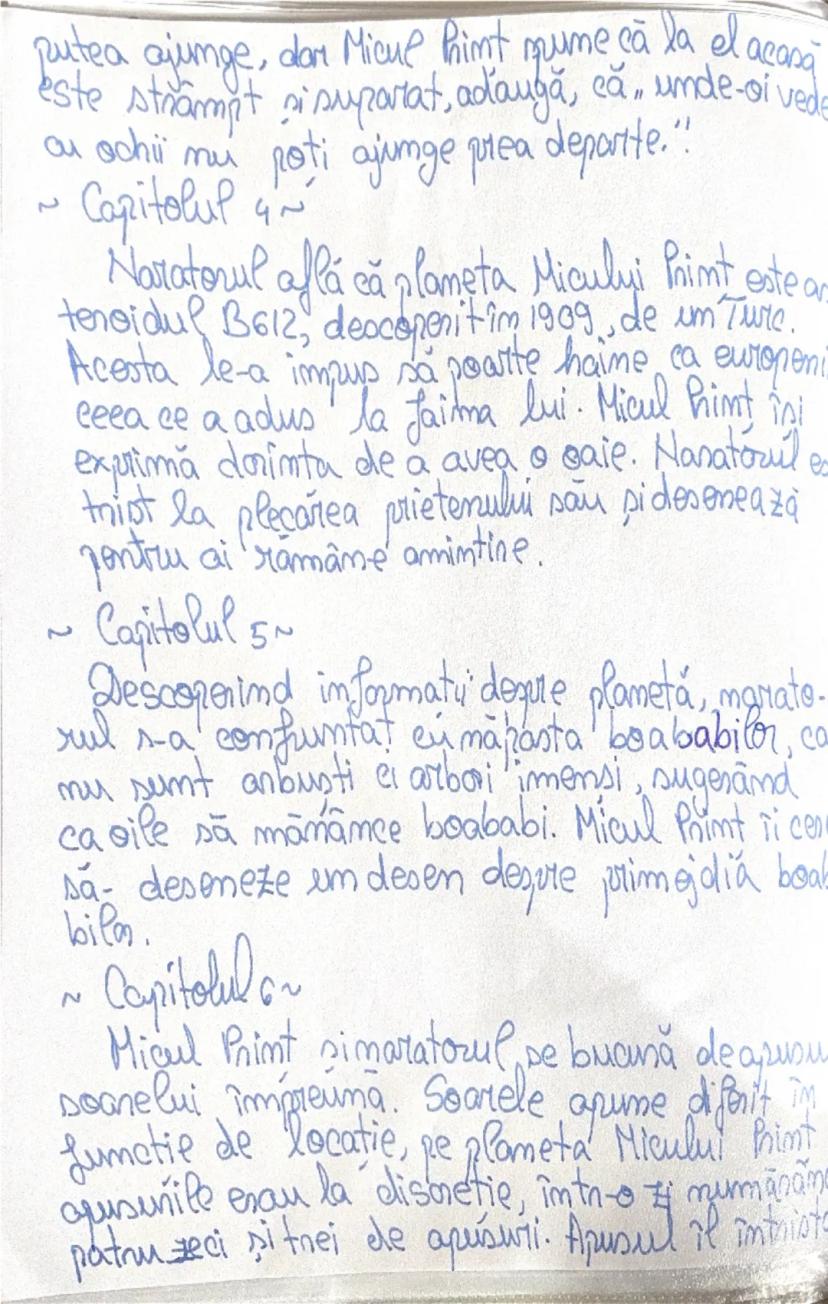 putea ajunge, dar Micul Prinț spune că la el acasă
este strâmpt și suparat, adaugă, că „unde-oi vede
cu ochii nu poți ajunge prea departe."
~ Capitolul 4 ~
Naratorul află că planeta Micului Prinț este as
teroidul B612, descoperit în 1909, de un Turc.
Acesta le-a impus să poarte haine ca europeni
ceea ce a adus la faima lui. Micul Prinț își
exprimă dorința de a avea o oaie. Naratorul es
trist la plecarea prietenului său și desenează
pentru ai rămâne amintire.
~ Capitolul 5 ~
Descoperind informații despre planetă, narato-
rul s-a confruntat cu năpasta boababilor, ca
nu sunt arbuști ci arbori imensi, sugerând
ca oile să mănânce boababi. Micul Prinț îi cere
să- deseneze un desen despre primejdia boab
bilor.
~ Capitolul 6 ~
Micul Prinț și naratorul se bucură de apusu
soarelui împreună. Soarele apune diferit în
funcție de locație, pe planeta Micului Prinț
apusurile erau la discreție, într-o zi numărăm
patruzeci și trei de apusuri. Apusul îl întrista